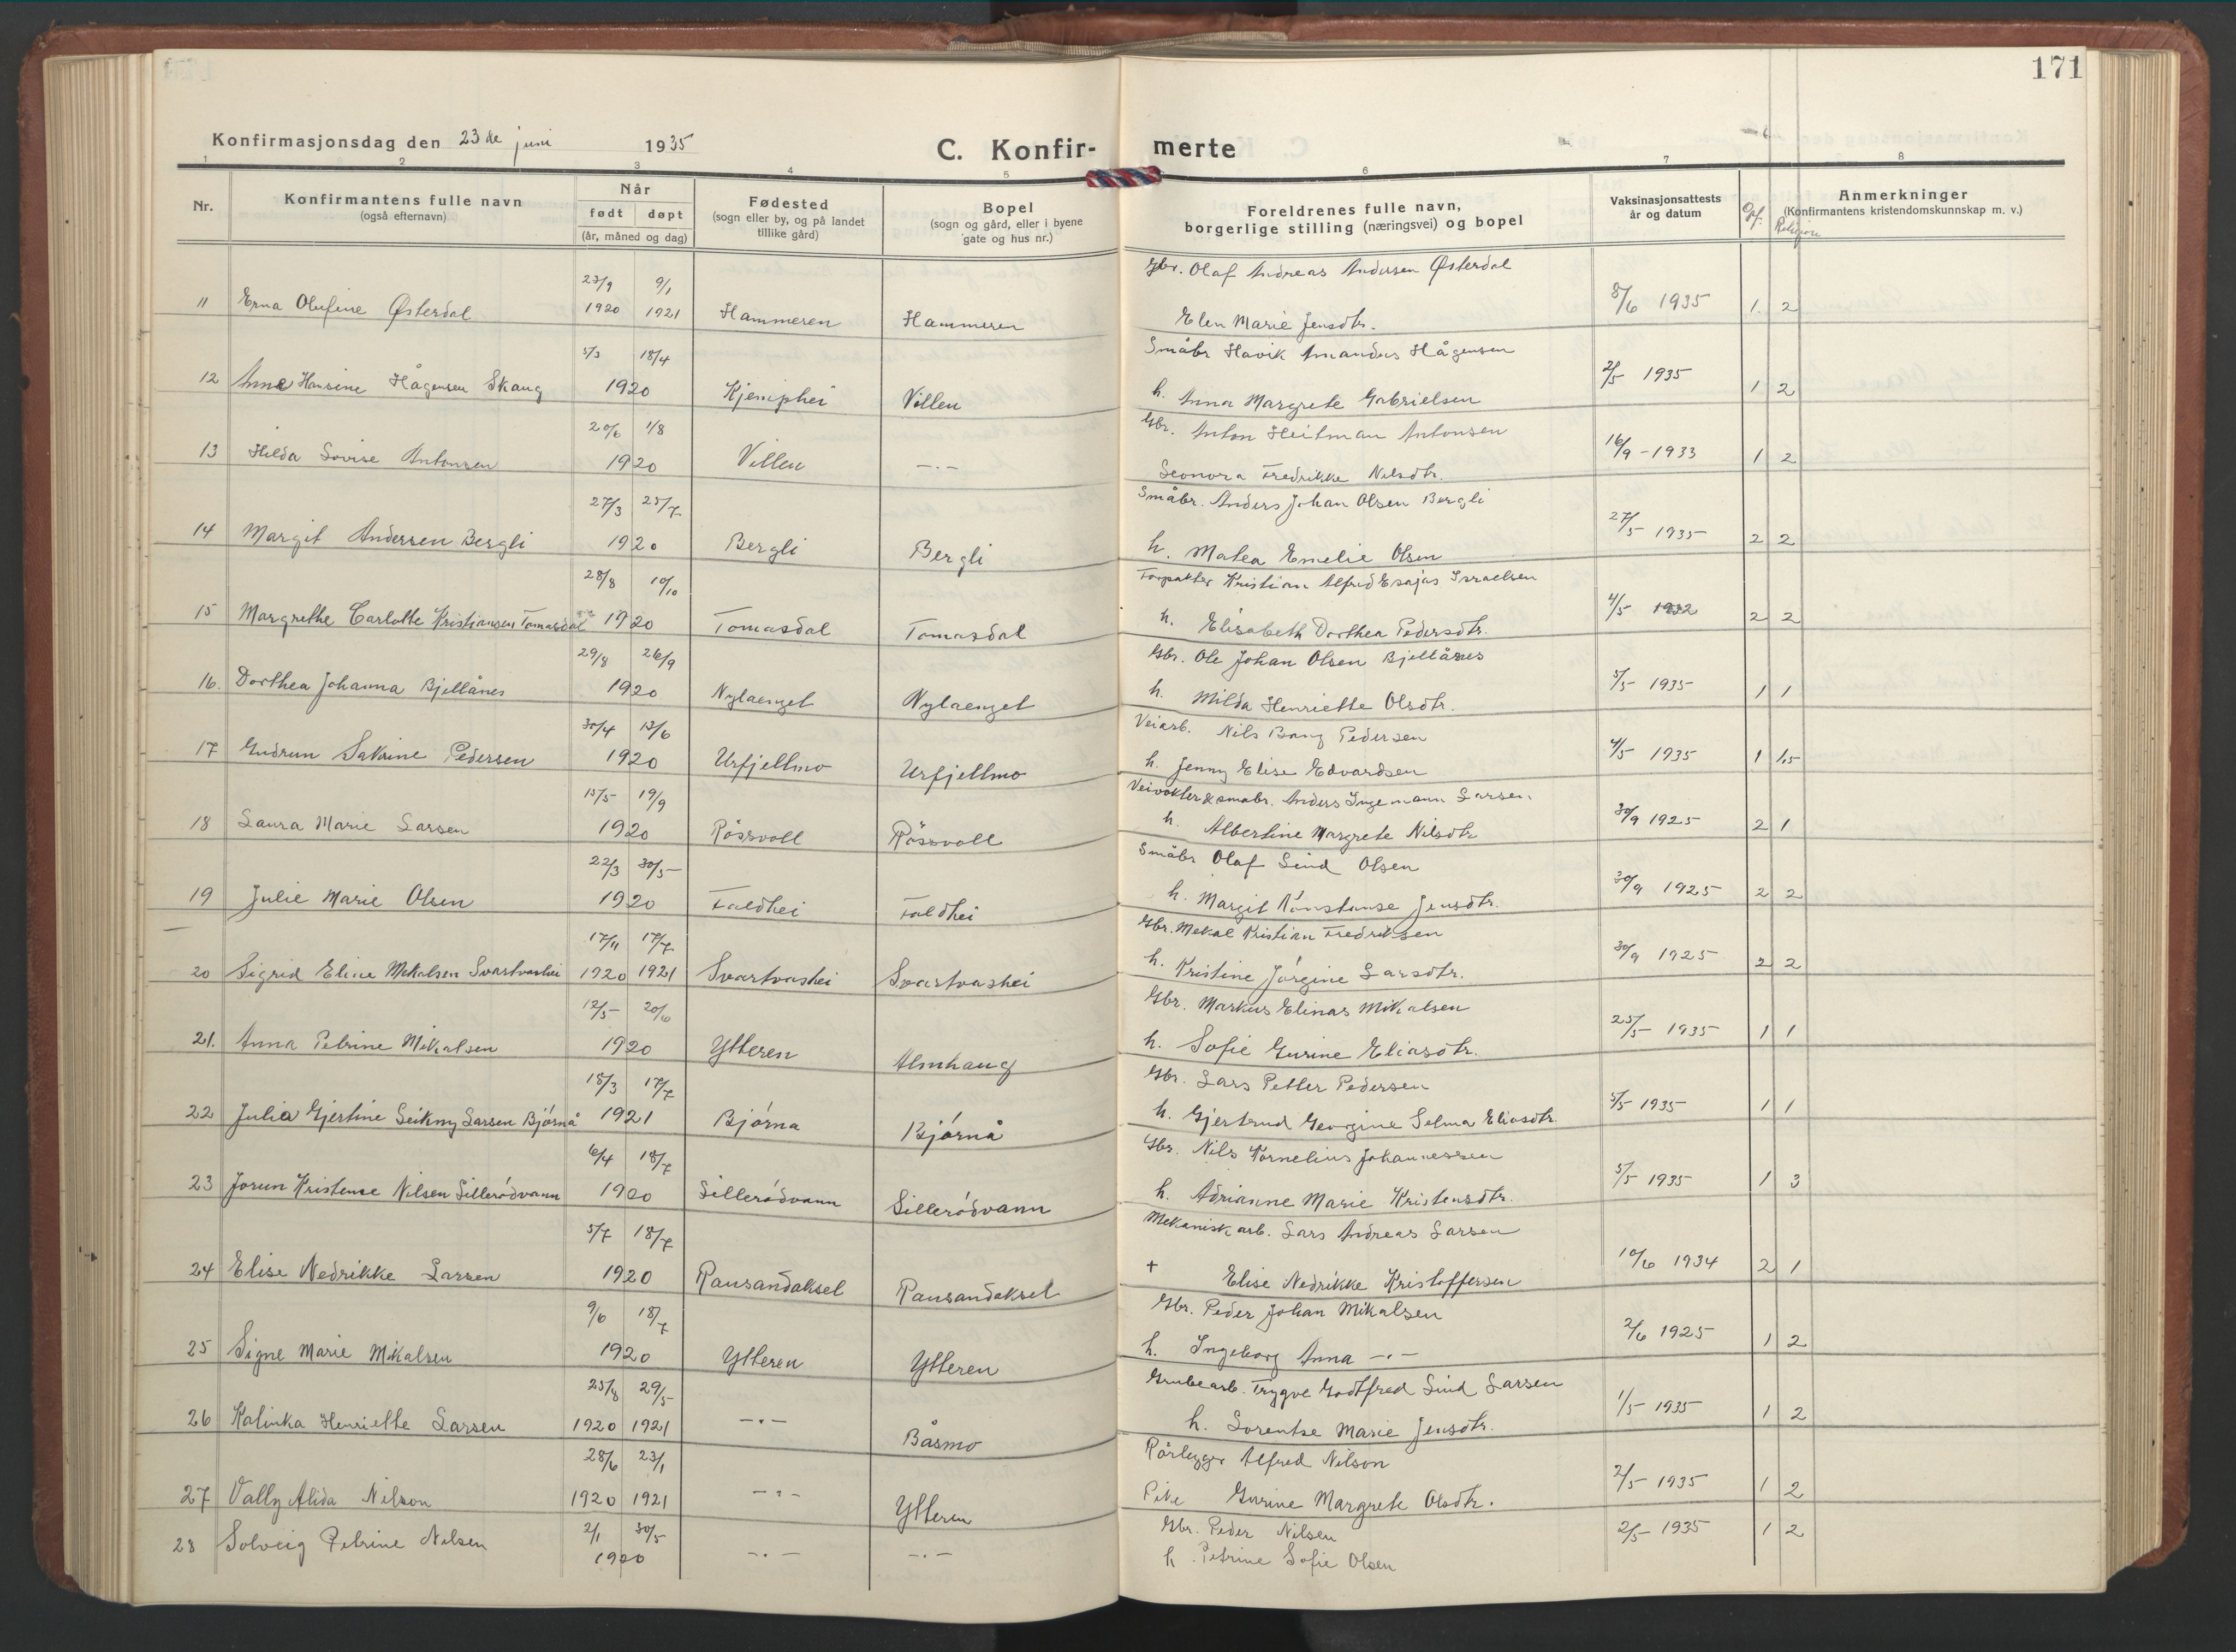 171
Konfirmasjonsdag den 23de juni 1935
C. Konfirmerte
1 2 3 4 5 6 7 8
Nr. Konfirmantens fulle navn (også efternavn) Når født døpt (år, måned og dag) Fødested (sogn eller by, og på landet tillike gård) Bopel (sogn og gård, eller i byene gate og hus nr.) Foreldrenes fulle navn, borgerlige stilling (næringsvei) og bopel Vaksinasjonsattests år og datum Opf. Religion Anmerkninger (Konfirmantens kristendomskunnskap m. v.)
23/9 9/1 Gbr. Olaf Andreas Andersen Østerdal
11 Erna Olufine Østerdal 1920 1921 Hammeren Hammeren Elen Marie Jensdtr. 8/6 1935 1. 2
5/3 18/4 Småbr Havik Amandus Hågensen
12 Anne Hansine Hågensen Skaug 1920 Kjemphei Villen h. Anna Margrete Gabrielsen 2/5 1935 1 2
20/6 1/8 Gbr. Anton Heitman Antonsen
13 Hilda Lovise Antonsen 1920 Villen -.- Leonora Fredrikke Nilsdtr. 16/9 - 1933 1 2
27/3 25/7 Småbr. Anders Johan Olsen Bergli
14 Margit Andersen Bergli 1920 Bergli Bergli h. Matea Emelie Olsen 27/5 1935 2 2
28/8 10/10 Forpakter Kristian Alfred Esajas Israelsen
15 Margrethe Carlotte Kristiansen Tomasdal 1920 Tomasdal Tomasdal h. Elisabeth Dorthea Pedersdtr. 4/5 1932 2 2
29/8 26/9 Gbr. Ole Johan Olsen Bjellånes
16. Dorthea Johanna Bjellånes 1920 Nylaenget Nylaenget h. Milda Henriette Olsdtr. 5/5 1935 1 1
30/4 13/6 Veiarb. Nils Bang Pedersen
17 Gudrun Sakrine Pedersen 1920 Urfjellmo Urfjellmo h. Jenny Elise Edvardsen 4/5 1935 1 1.5
15/5 19/9 Veivokter & småbr. Anders Ingemann Larsen.
18 Laura Marie Larsen 1920 Røssvoll Røssvoll h. Albertine Margrete Nilsdtr 30/9 1925 2 1
22/3 30/5 Småbr Olaf Lind Olsen
19 Julie Marie Olsen 1920 Faldhei Faldhei h. Margit Konstanse Jensdtr. 30/9 1925 2 2
17/11 17/7 Gbr. Mekal Kristian Fredriksen
20 Sigrid Eline Mekalsen Svartvashei 1920 1921 Svartvashei Svartvashei h. Kristine Jørgine Larsdtr. 30/9 1925 2 2
12/5 20/6 Gbr. Markus Elinas Mikalsen
21. Anna Petrine Mikalsen 1920 Ytteren Almhaug h. Sofie Gurine Eliasdtr. 25/5 1935 1 1
18/3 17/7 Gbr. Lars Petter Pedersen
22 Julia Gjertine Leikny Larsen Bjørnå 1921 Bjørna Bjørnå h. Gjertrud Georgine Selma Eliasdtr. 5/5 1935 1 1
6/4 18/7 Gbr. Nils Kornelius Johannessen
23 Jorun Kristense Nilsen Sillerødvann 1920 Sillerødvann Sillerødvann h. Adrianne Marie Kristensdtr. 5/5 1935 1 3
5/7 18/7 Mekanisk arb. Lars Andreas Larsen
24 Elise Nedrikke Larsen 1920 Ransandaksel Ransandaksel + Elise Nedrikke Kristoffersen 10/6 1934 2 1
9/6 18/7 Gbr. Peder Johan Mikalsen
25 Signe Marie Mikalsen 1920 Ytteren Ytteren h. Ingeborg Anna -.- 2/6 1925 1 2
25/8 29/5 Grubearb. Trygve Godtfred Lind Larsen
26 Kalinka Henriette Larsen 1920 1921 -.- Båsmo h. Lorentse Marie Jensdtr. 1/5 1935 1 2
28/6 23/1 Rørlegger Alfred Nilson
27 Vally Alida Nilson 1920 1921 -.- Ytteren Pike Gurine Margrete Olsdtr. 2/5 1935 1 2
2/1 30/5 Gbr. Peder Nilsen
28 Solveig Petrine Nilsen 1920 -.- -.- h. Petrine Sofie Olsen 2/5 1935 1 2